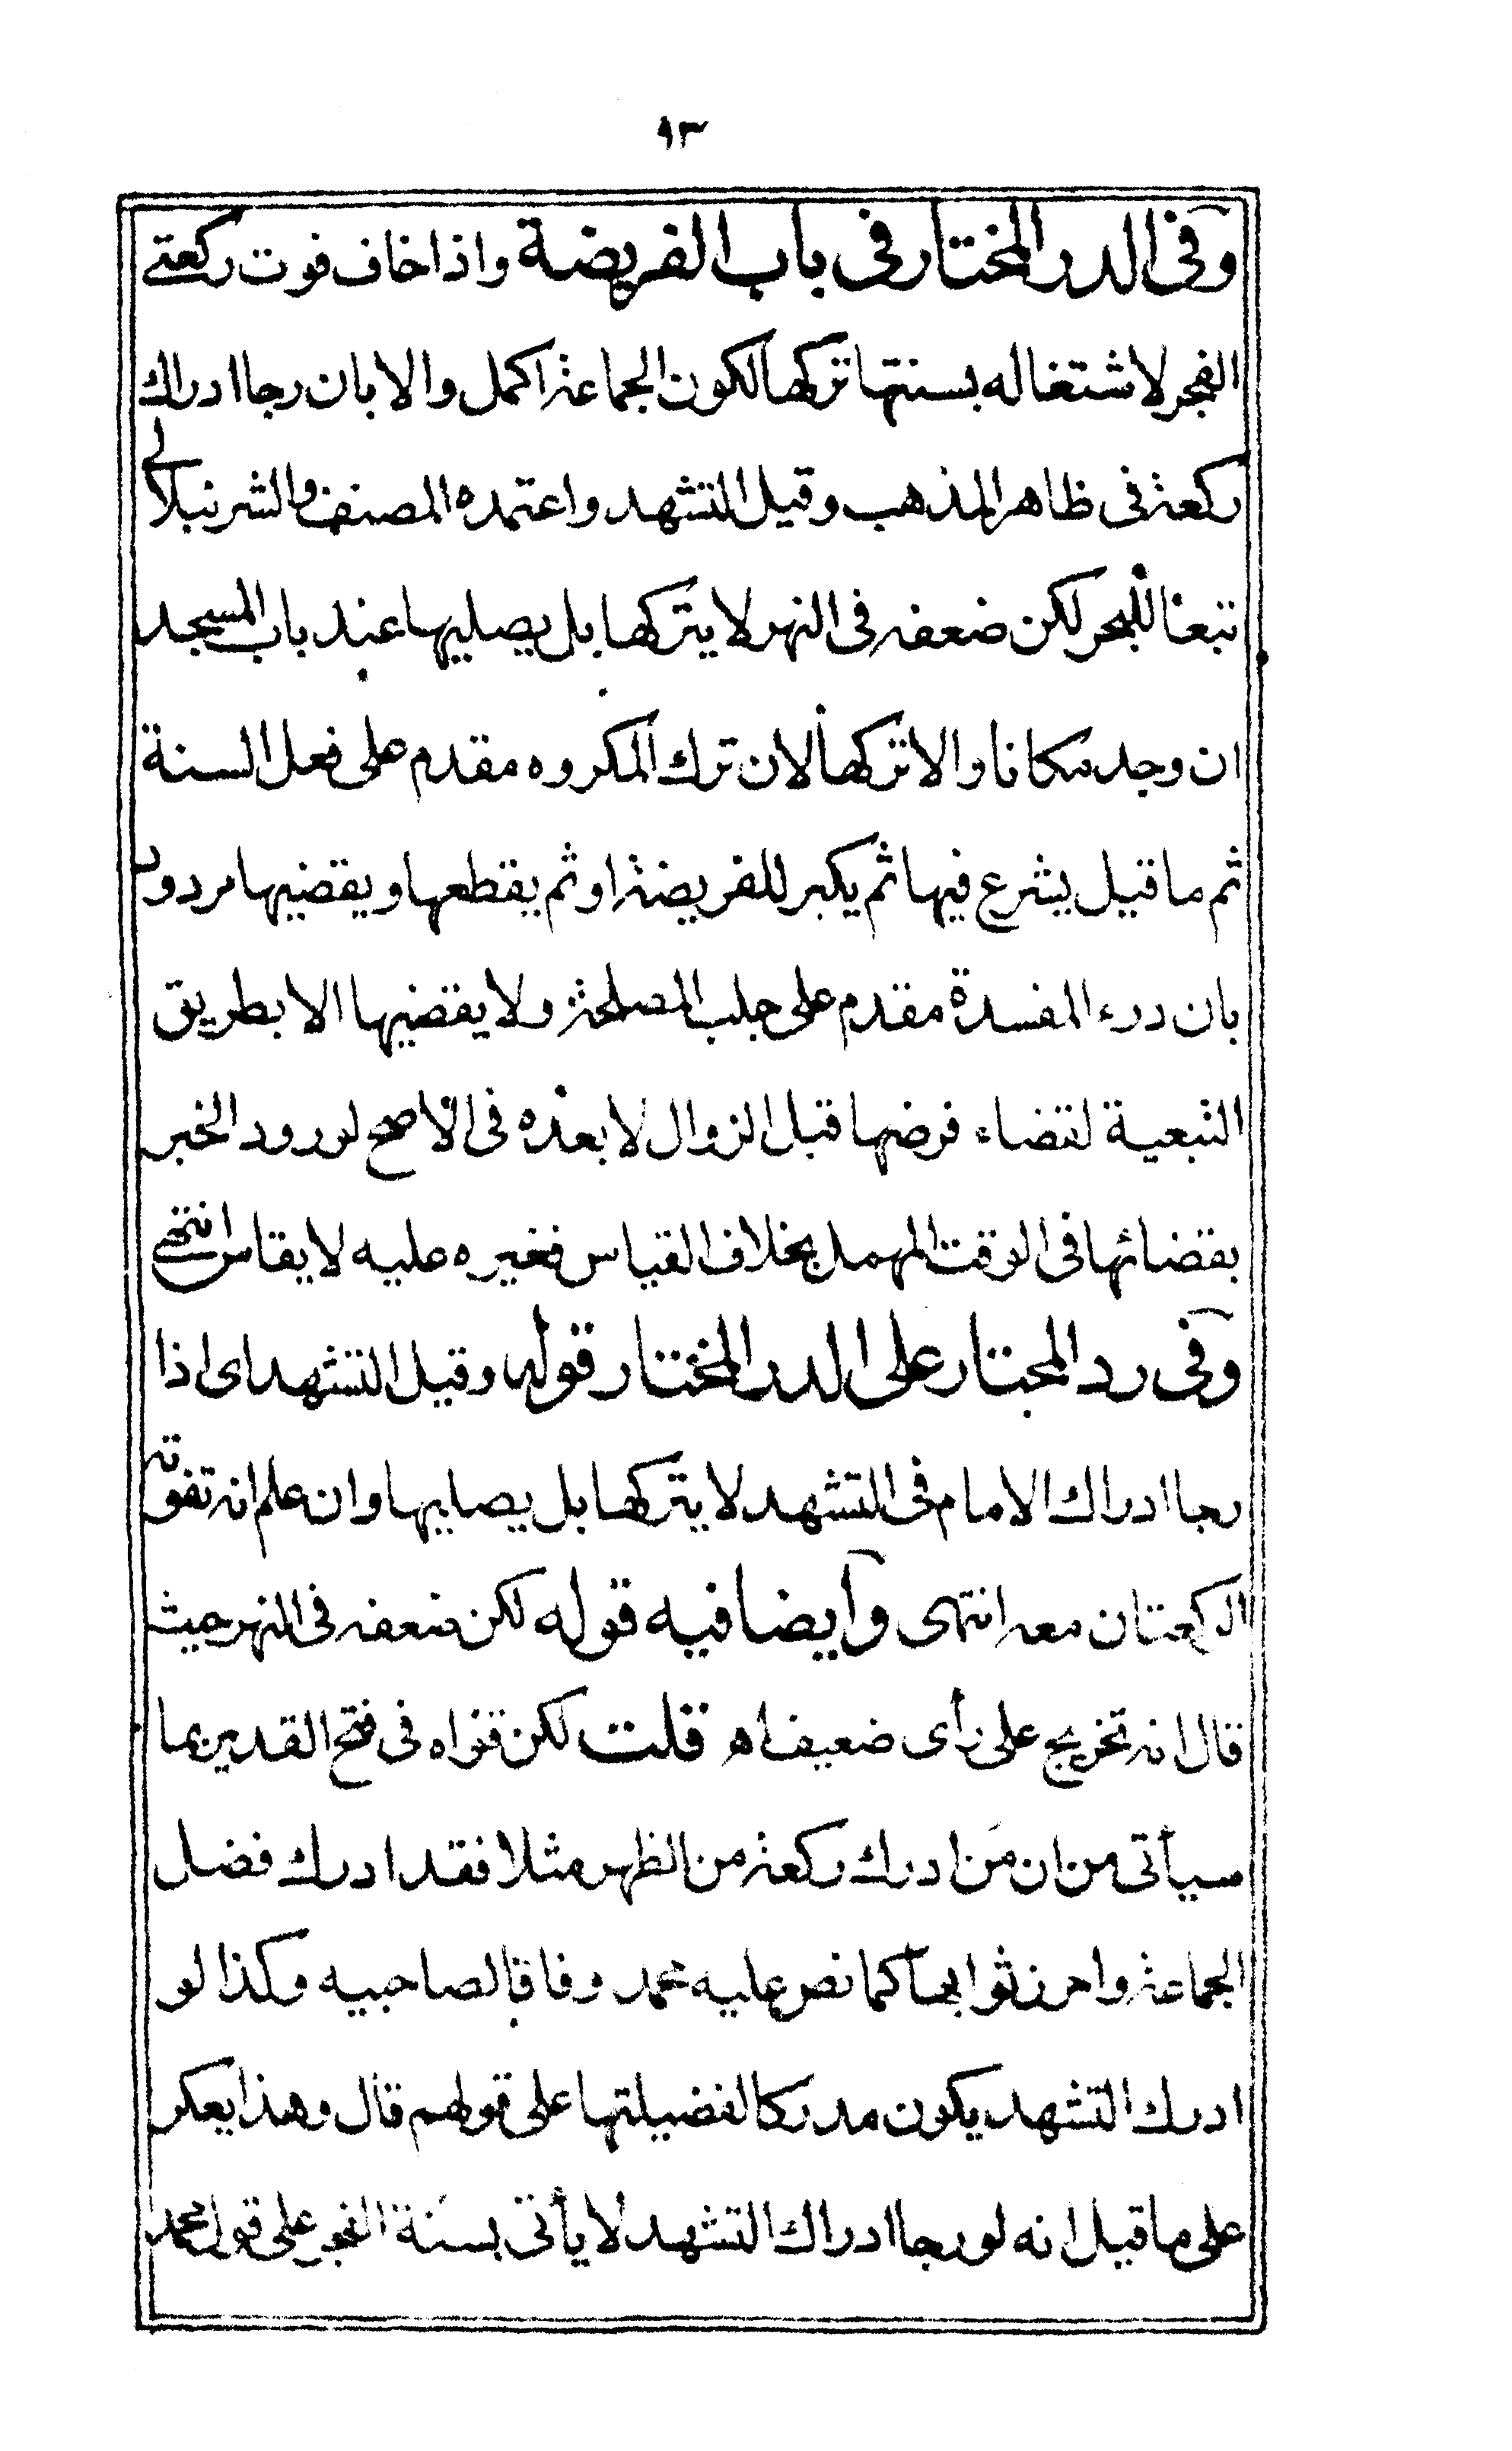 ٩٣
وفى الدر المختار فى باب الفريضة واذا خاف فوت ركعتے
الفجر لاشتغاله بسنتها تركها لكون الجماعة اكمل والا بان رجا ادراك
ركعة فى ظاهر المذهب وقيل التشهد واعتمده المصنف والشرنبلالے
تبعا للبحر لكن ضعفه فى النهر لا يتركها بل يصليها عند باب المسجد
ان وجد مكانا والا تركها لان ترك المكروه مقدم على فعل السنة
ثم ما قيل يشرع فيها ثم يكبر للفريضة او ثم يقطعها ويقضيها مردود
بان درء المفسدة مقدم على جلب المصلحة ولا يقضيها الا بطريق
التبعية لقضاء فرضها قبل الزوال لا بعده فى الأصح لورود الخبر
بقضائها فى الوقت المهمل بخلاف القياس فغيره عليه لا يقاس انتهے
وفى رد المحتار على الدر المختار قوله وقيل التشهد اى اذا
رجا ادراك الامام فى التشهد لا يتركها بل يصليها وان علم انه تفوته
الركعتان معه انتهى وايضا فيه قوله لكن ضعفه فى النهر حيث
قال انه تخريج على رأى ضعيف اه قلت لكن قواه فى فتح القدير بما
سيأتى من ان من ادرك ركعة من الظهر مثلا فقد ادرك فضل
الجماعة واحرز ثوابها كما نص عليه محمد وفاقا لصاحبيه وكذا لو
ادرك التشهد يكون مدركا لفضيلتها على قولهم قال وهذا يعكر
على ما قيل انه لو رجا ادراك التشهد لا يأتى بسنة الفجر على قول محمد